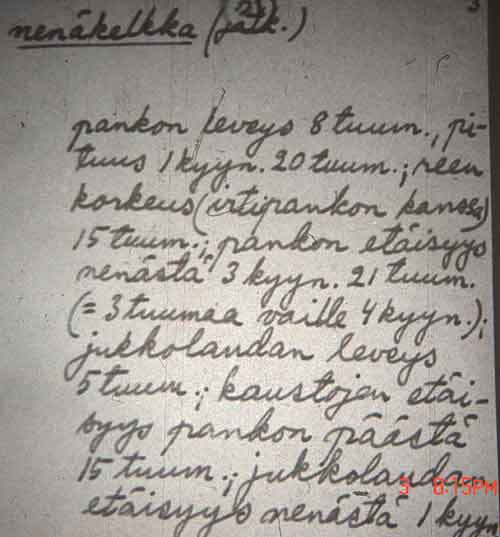 nenäkelkka (jatk.)
3
pankon leveys 8 tuum., pi-
tuus 1 kyyn. 20 tuum.; reen
korkeus (irtipankon kanssa)
15 tuum.; pankon etäisyys
nenästä 3 kyyn. 21 tuum.
(= 3 tuumaa vaille 4 kyyn.);
jukkolaudan leveys
5 tuum.; kaustojen etäi-
syys pankon päästä
15 tuum.; jukkolaudan
etäisyys nenästä 1 kyyn
3 8:15PM